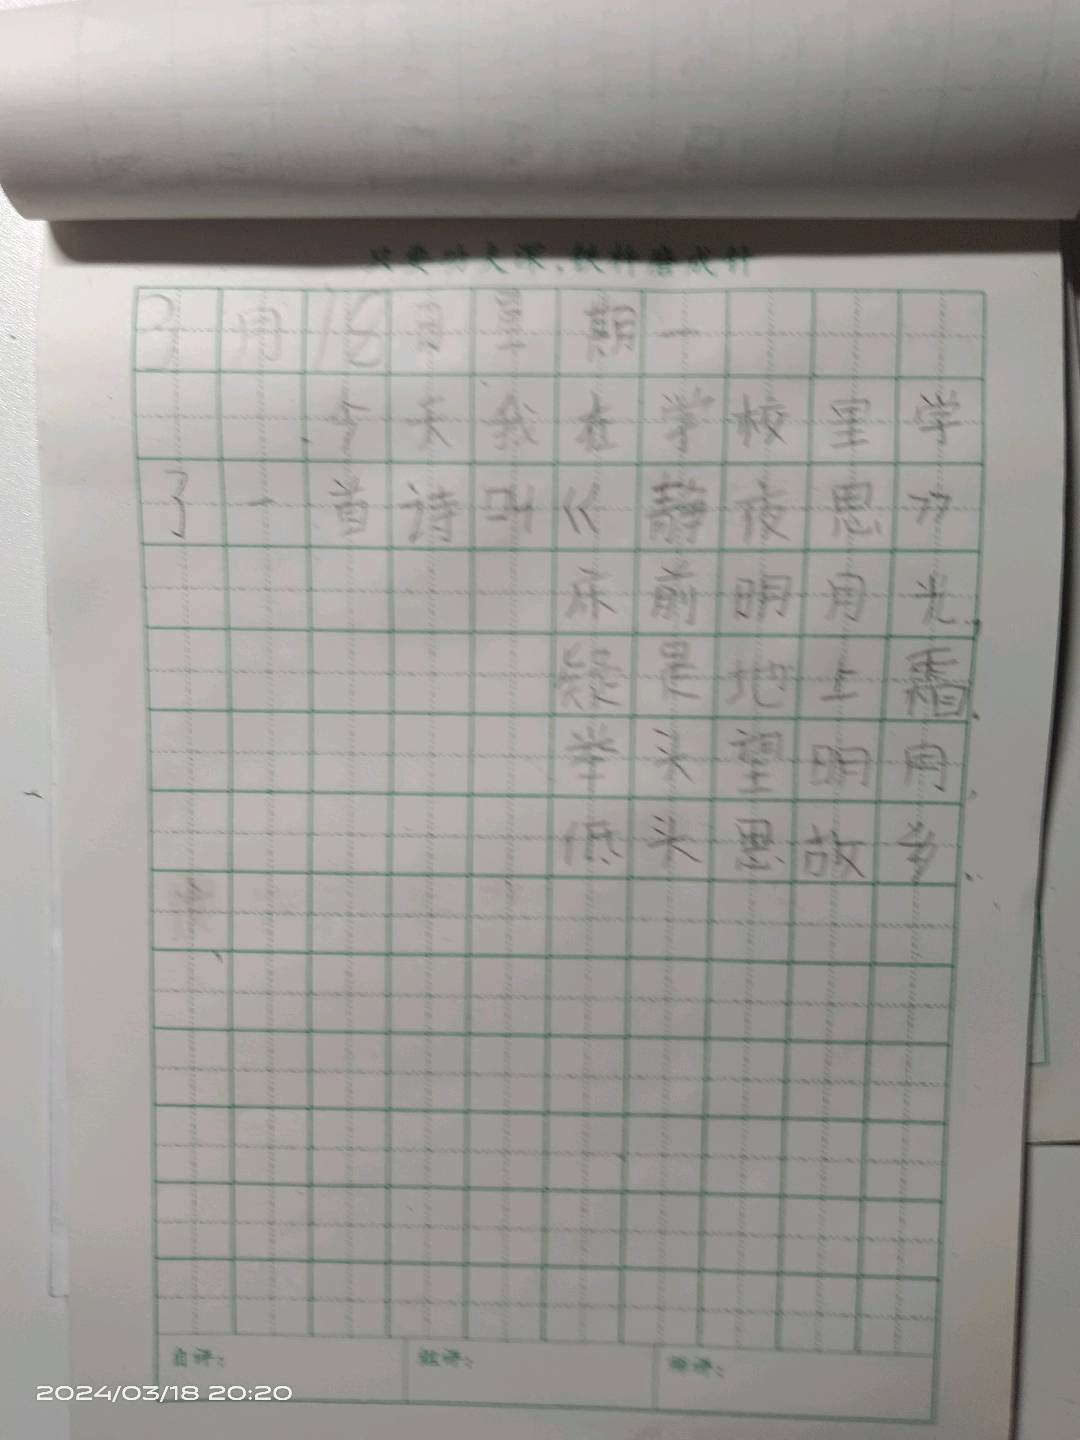 只要功夫深，铁杵磨成针
3月18日星期一
今天我在学校里学
了一首诗叫《静夜思》
床前明月光，
疑是地上霜。
举头望明月，
低头思故乡。
自评：
2024/03/18 20:20